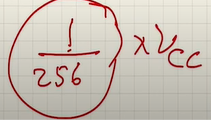 1/256 x Vcc